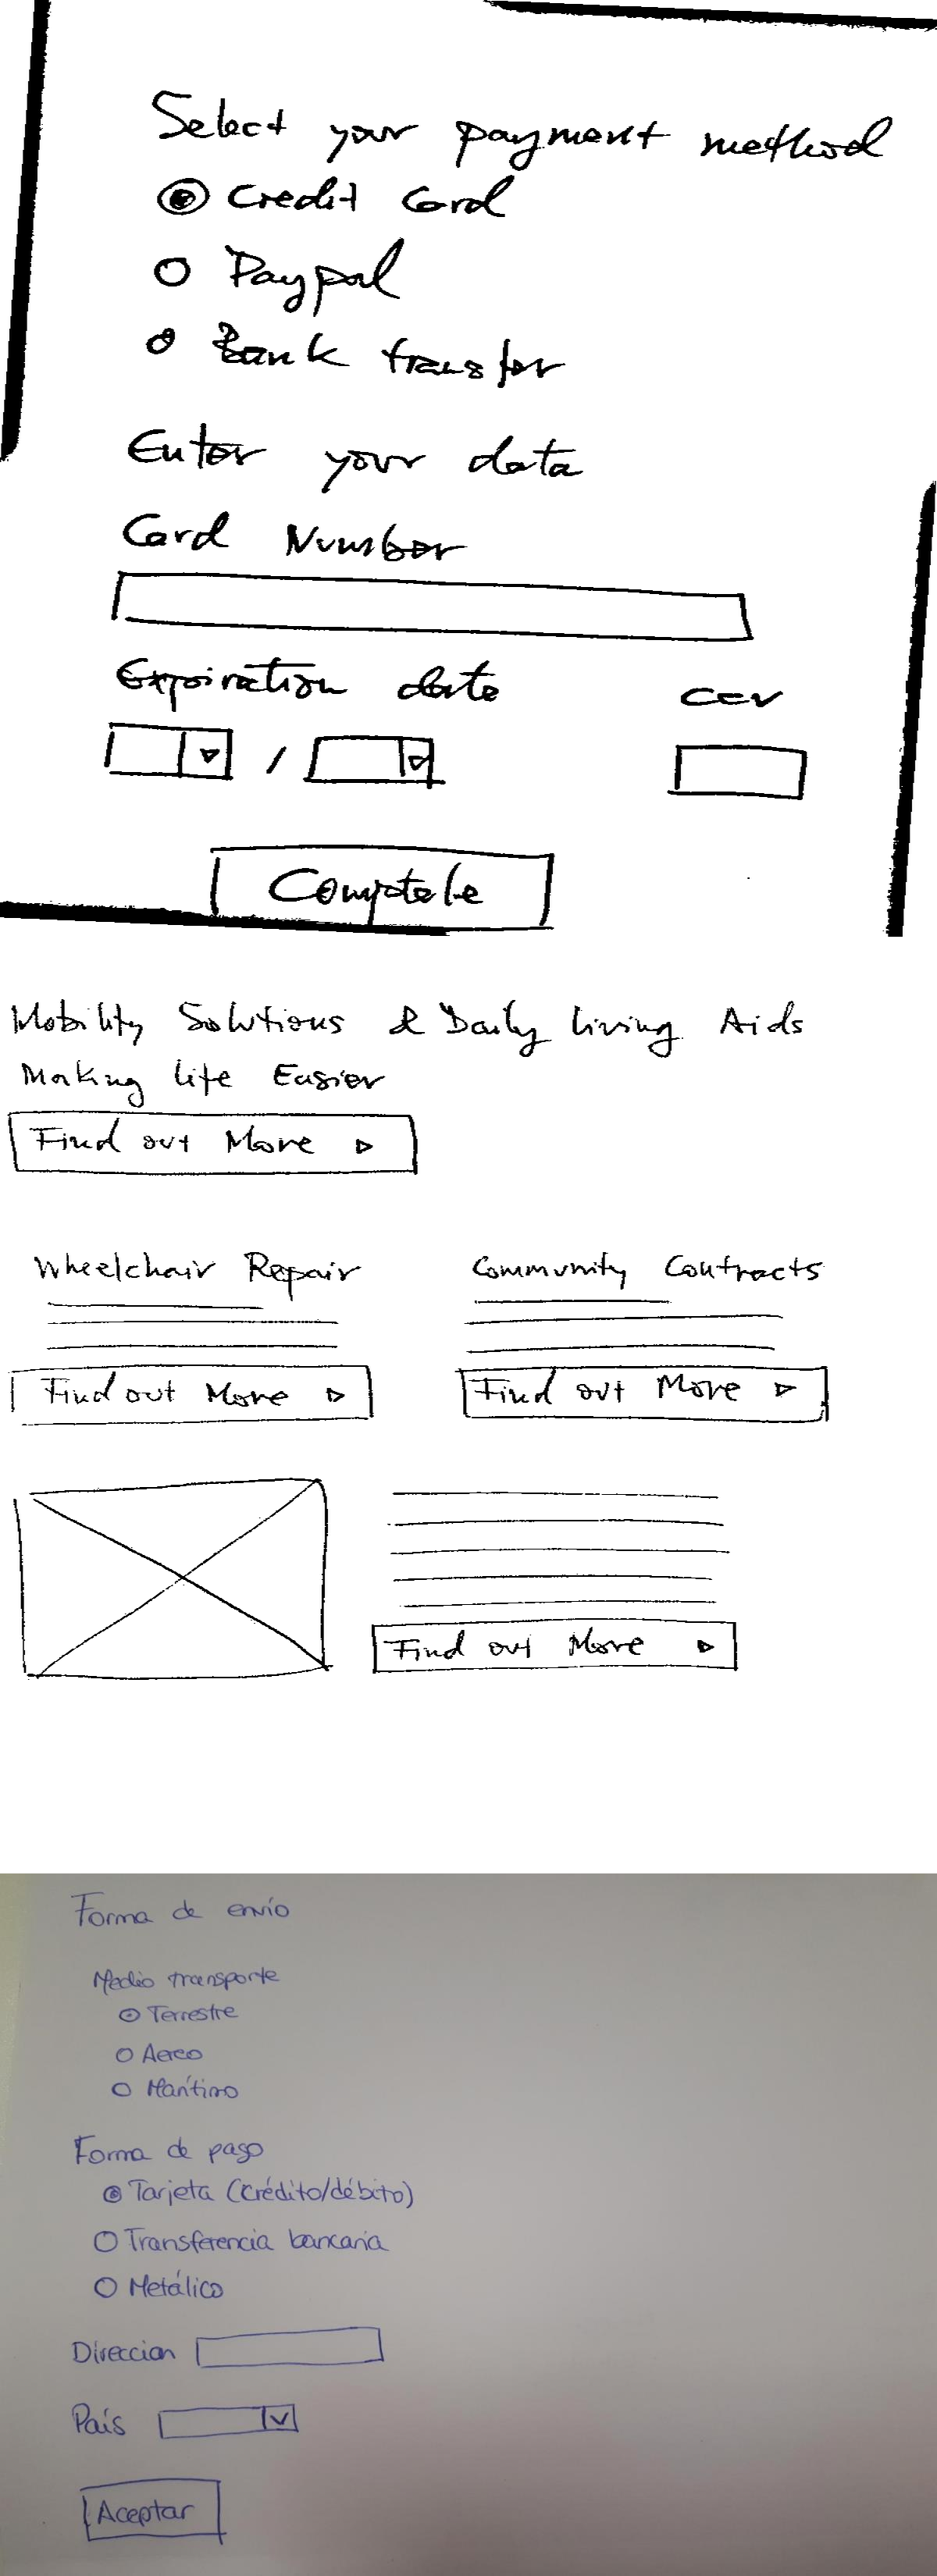 Select your payment method
Credit Card
Paypal
Bank transfer
Enter your data
Card Number
Expiration date
CCV
/
Complete
Mobility Solutions & Daily living Aids
Making life Easier
Find out More
Wheelchair Repair
Community Contracts
Find out More
Find out More
Find out More
Forma de envío
Medio transporte
Terrestre
Aereo
Marítimo
Forma de pago
Tarjeta (crédito/débito)
Transferencia bancaria
Metálico
Direccion
País
Aceptar